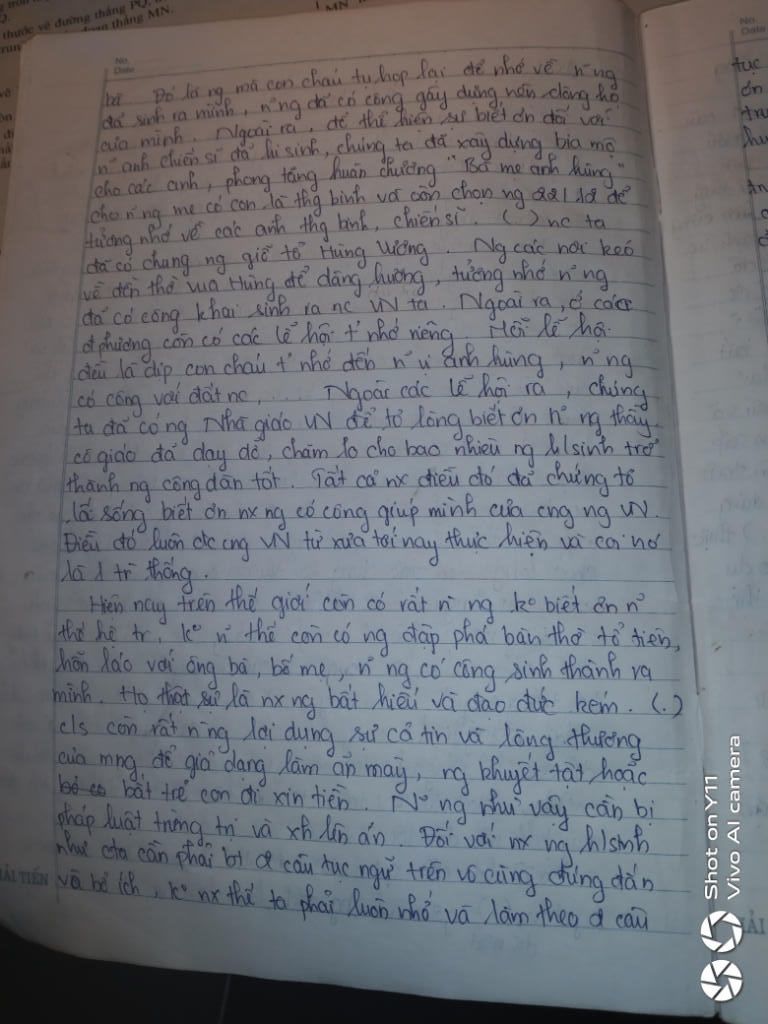 thước vẽ đường thẳng PQ,
đoạn thẳng MN.
MN
No.
Date
bè Đó là ng mà con cháu tụ họp lại để nhớ về n~ng
đã sinh ra mình, n~ng đã có công gây dựng nên dòng họ
của mình. Ngoài ra, để thể hiện sự biết ơn đối với
n~ anh chiến sĩ đã hi sinh, chúng ta đã xây dựng bia mộ
cho các anh, phong tặng huân chương "Bà mẹ anh hùng"
cho n~ng mẹ có con là thg binh và còn chọn ng 22/12 để
tưởng nhớ về các anh thg binh, chiến sĩ. ( ) nc ta
đã có chung ng giỗ tổ Hùng Vương. Ng các nơi keó
về đền thờ vua Hùng để dâng hương, tưởng nhớ n~ng
đã có công khai sinh ra nc VN ta. Ngoài ra, ở các
đphương còn có các lễ hội t' nhớ riêng. Mỗi lễ hội
đều là dịp con cháu t' nhớ đến n~ vị anh hùng, n~ng
có công với đất nc, ... Ngoài các lễ hội ra, chúng
ta đã có ng Nhà giáo VN để tỏ lòng biết ơn n~ ng thầy
cô giáo đã dạy dỗ, chăm lo cho bao nhiêu ng h/sinh trở
thành ng công dân tốt. Tất cả nx điều đó đã chứng tỏ
lẽ sống biết ơn nx ng có công giúp mình của cng ng VN.
Điều đó luôn đc cng VN từ xưa tới nay thực hiện và coi nó
là 1 tr` thống.
Hiện nay trên thế giới còn có rất n` ng k° biết ơn n~
thế hệ tr', k° n~ thế còn có ng đập phá bàn thờ tổ tiên,
hỗn láo với ông bà, bố mẹ, n~ng có công sinh thành ra
mình. Họ thật sự là nx ng bất hiếu và đạo đức kém. (.)
c/s còn rất n`ng lợi dụng sự cả tin và lòng thương
của mng để giả dạng làm ăn mày, ng khuyết tật hoặc
bắt trẻ con đi xin tiền. N~ ng như vậy cần bị
pháp luật trừng trị và xh lên án. Đối với nx ng h/sinh
như cta cần phải bt đ câu tục ngữ trên vô cùng đúng đắn
và bổ ích, k° nx thế ta phải luôn nhớ và làm theo đ câu
ẢI TIẾN
No.
Date
tục
ơn
Shot on Y11
Vivo AI camera